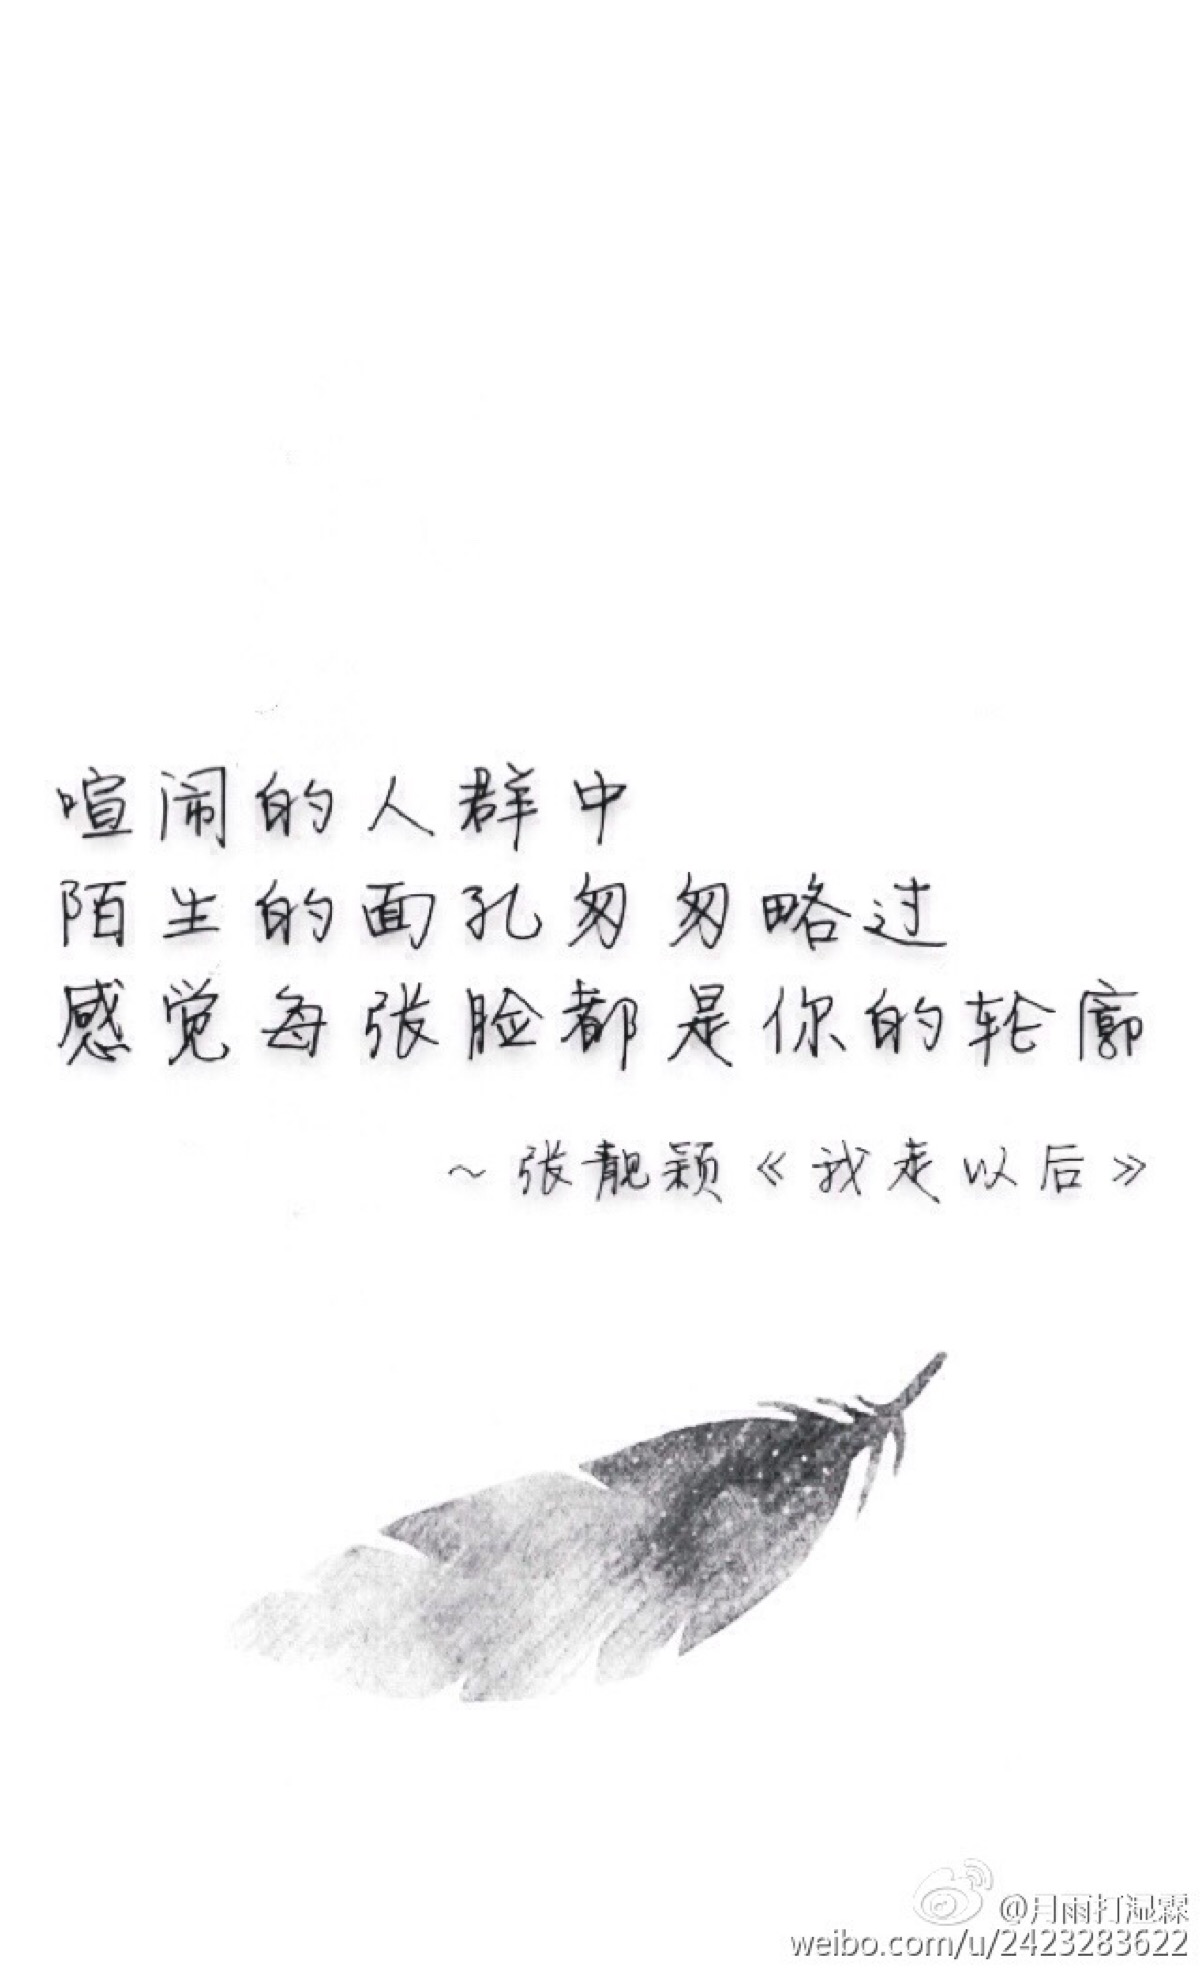 喧闹的人群中
陌生的面孔匆匆略过
感觉每张脸都是你的轮廓
～张靓颖《我走以后》
@月雨打湿霖
weibo.com/u/2423283622